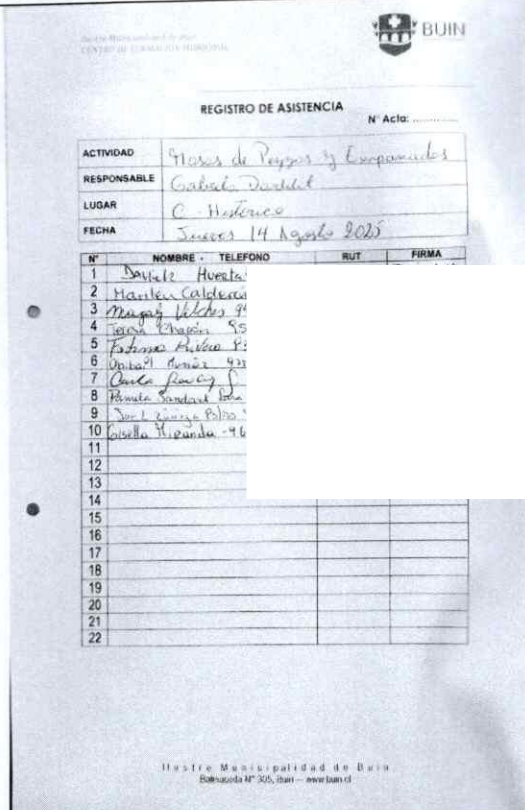 Ilustre Municipalidad de Buin
CENTRO DE FORMACIÓN MUNICIPAL
BUIN
REGISTRO DE ASISTENCIA
N° Acta: ............
ACTIVIDAD Masas de Peggos y Empanadas
RESPONSABLE Gabriela
LUGAR C. Histórico
FECHA Jueves 14 Agosto 2025
N° NOMBRE - TELEFONO RUT FIRMA
1 Huerta
2 Marilen Calderón
3 Magaly Vilches 9
4 Teresa Chacón 95
5 Rivera
6 Muñoz
7 Carla
8 Pamela Sandoval
9 Zúñiga
10 Gisella Miranda - 96
11
12
13
14
15
16
17
18
19
20
21
22
Ilustre Municipalidad de Buin
Balmaceda N° 305, Buin – www.buin.cl